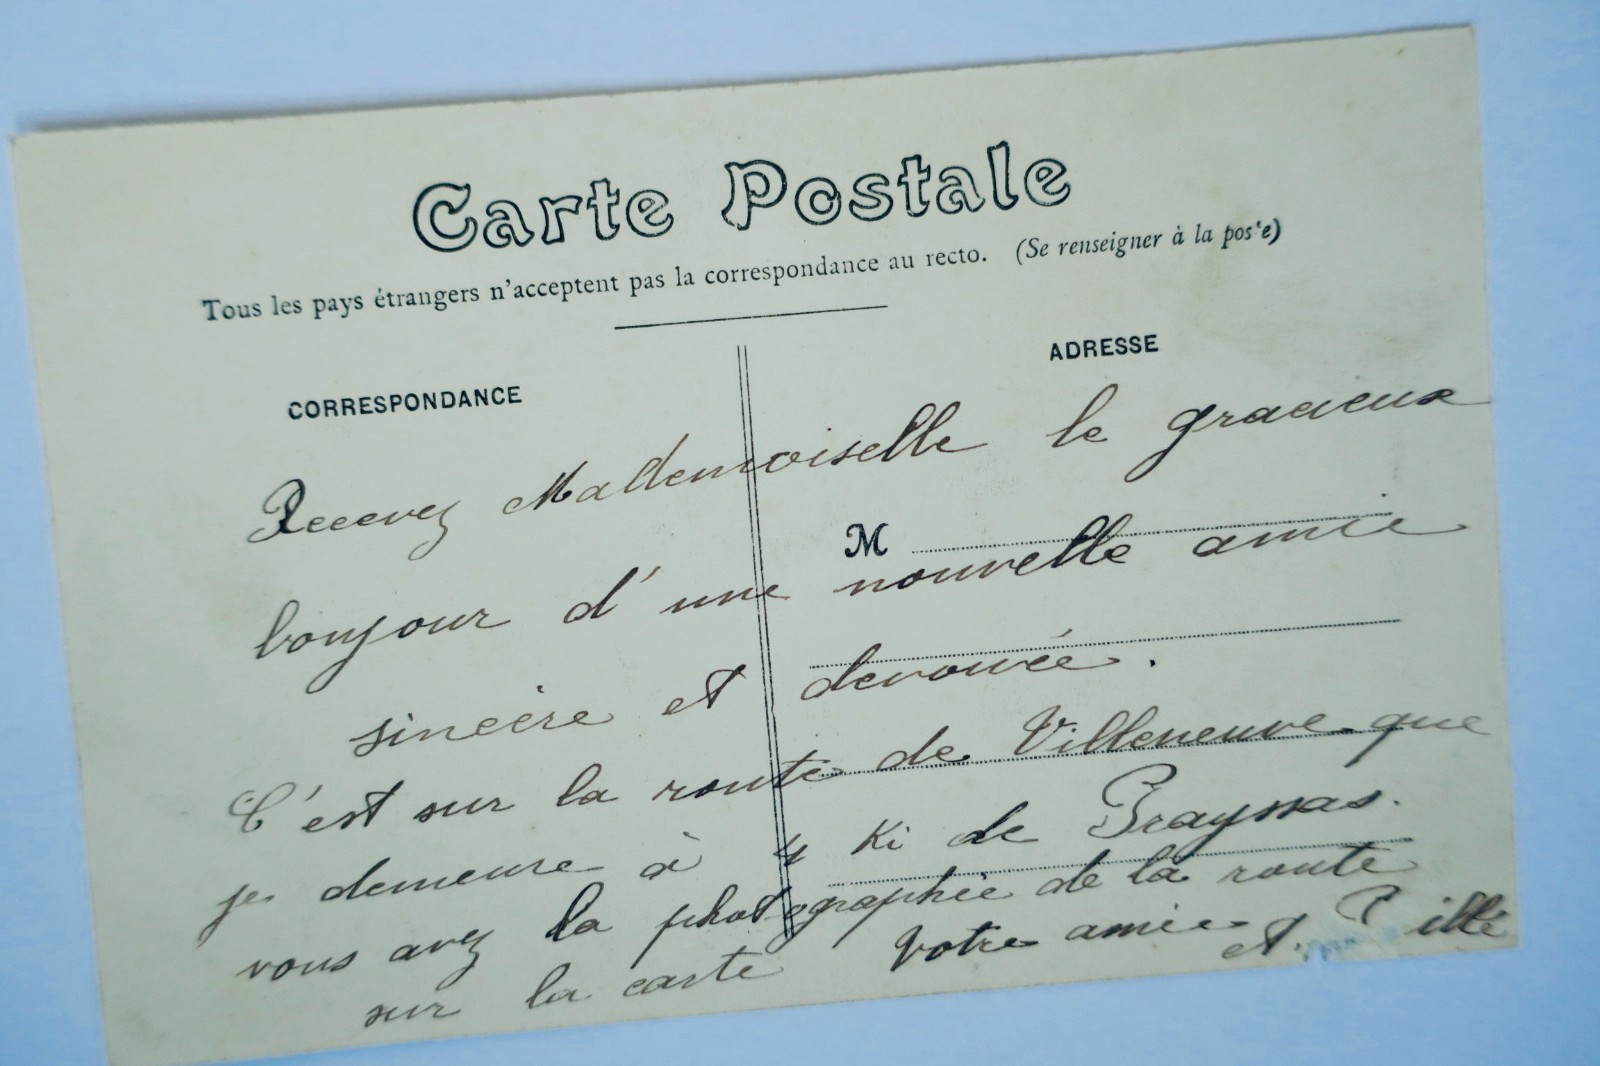 Carte Postale
Tous les pays étrangers n'acceptent pas la correspondance au recto. (Se renseigner à la pos'e)
CORRESPONDANCE
ADRESSE
M
Recevez Mademoiselle le gracieux
bonjour d'une nouvelle amie
sincère et devouée.
C'est sur la route de Villeneuve que
je demeure à 4 Ki de Prayssas.
vous avez la photographie de la route
sur la carte Votre amie